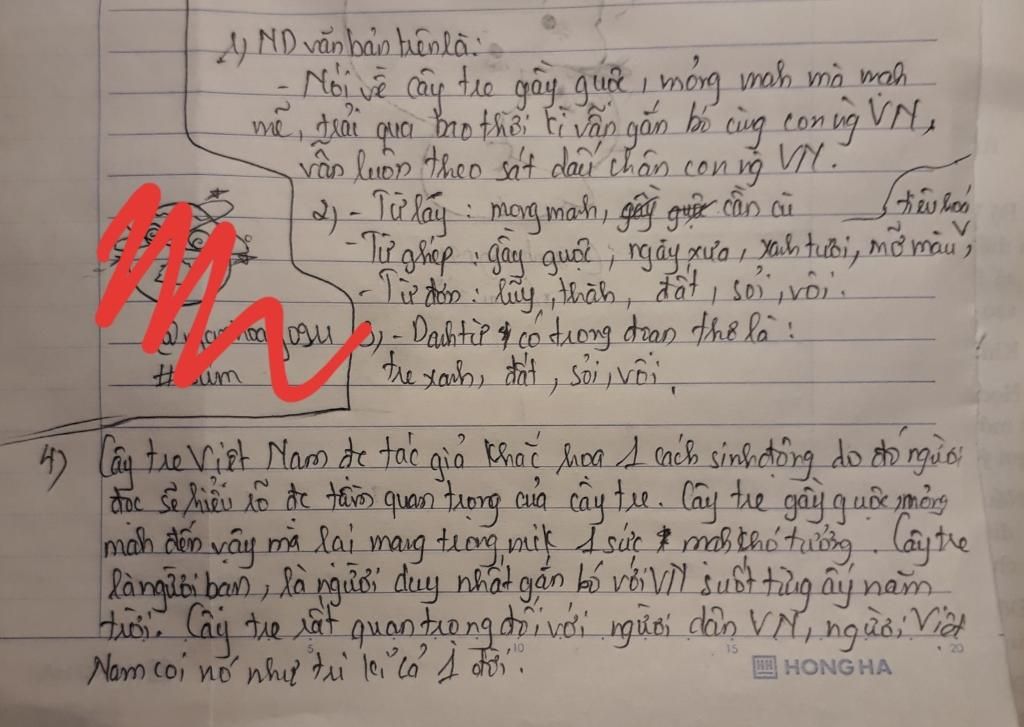 1) ND văn bản trên là:
- Nói về cây tre gầy guộc, mỏng manh mà mạnh
mẽ, trải qua bao thời kì vẫn gắn bó cùng con ng VN,
vẫn luôn theo sát dấu chân con ng VN.
2) - Từ láy: mong manh, cần cù
tiêu hoá
- Từ ghép: gầy guộc, ngày xưa, xanh tươi, mỡ màu,
- Từ đơn: lũy, thàh, đất, sỏi, vôi.
3) - Dah từ có trong đoạn thơ là:
tre xanh, đất, sỏi, vôi.
4) Cây tre Việt Nam đc tác giả khắc hoạ 1 cách sinh động do đó người
đọc sẽ hiểu rõ đc tầm quan trọng của cây tre. Cây tre gầy guộc, mỏng
mảnh đến vậy mà lại mang trong mik 1 sức mah khó tưởng. Cây tre
là người bạn, là người duy nhất gắn bó với VN suốt từng ấy năm
trời. Cây tre rất quan trọng đối với người dân VN, người Việt
Nam coi nó như tri kỉ cả 1 đời.
5 10 15 20
HH HONG HA